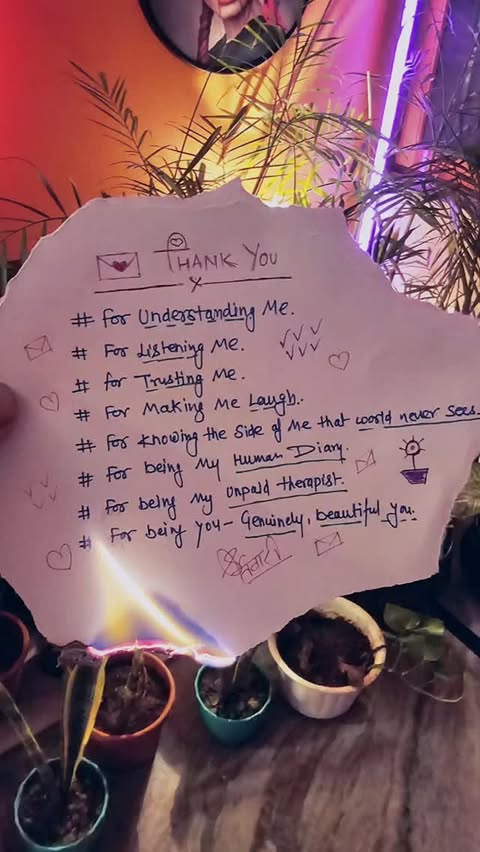 THANK YOU
# For Understanding Me.
# For Listening Me.
# for Trusting Me.
# For Making Me Laugh.
# For Knowing the side of Me that world never sees.
# For being My Human Diary.
# For being My Unpaid therapist.
# For being you- Genuinely, beautiful you.